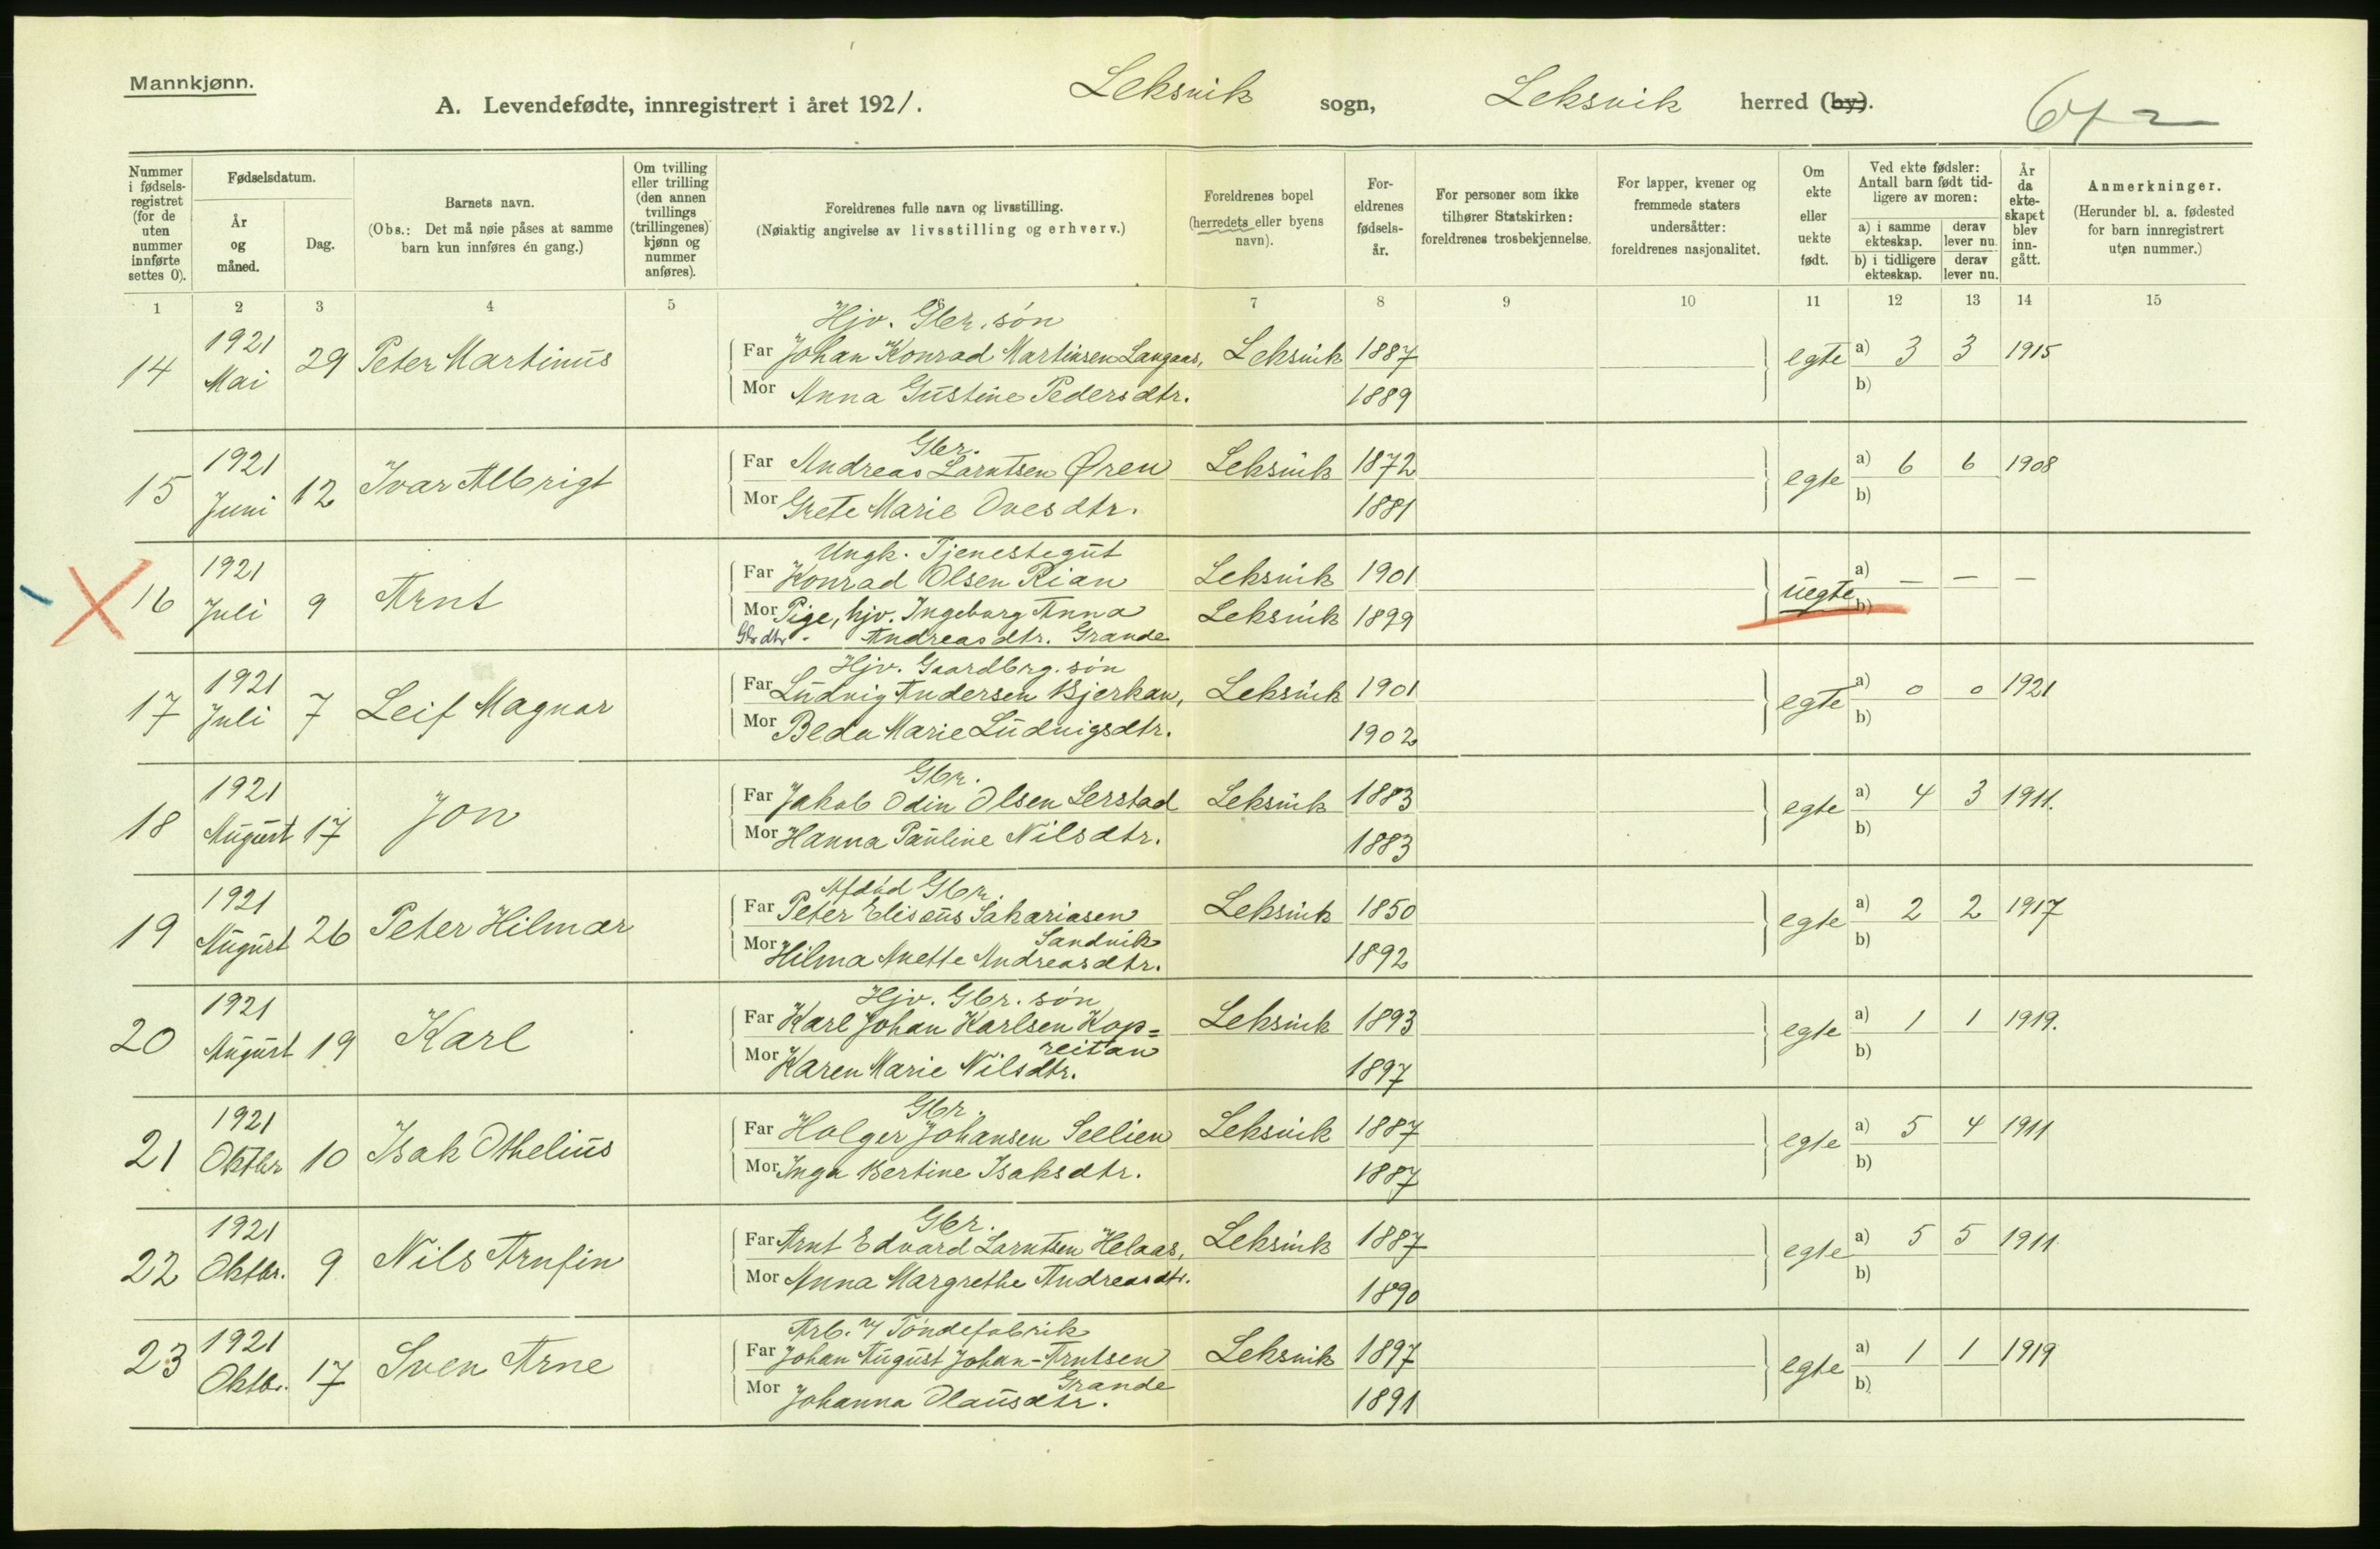 Mannkjønn.
A. Levendefødte, innregistrert i året 1921. Leksvik sogn, Leksvik herred (by).
Nummer i fødsels-registret (for de uten nummer innførte settes 0).
Fødselsdatum.
År og måned.
Dag.
Barnets navn.
(Obs.: Det må nøie påses at samme barn kun innføres én gang.)
Om tvilling eller trilling (den annen tvillings (trillingenes) kjønn og nummer anføres).
Foreldrenes fulle navn og livsstilling.
(Nøiaktig angivelse av livsstilling og erhverv.)
Foreldrenes bopel (herredets eller byens navn).
For-eldrenes fødsels-år.
For personer som ikke tilhører Statskirken: foreldrenes trosbekjennelse.
For lapper, kvener og fremmede staters undersåtter: foreldrenes nasjonalitet.
Om ekte eller uekte født.
Ved ekte fødsler: Antall barn født tid-ligere av moren:
a) i samme ekteskap. derav lever nu.
b) i tidligere ekteskap. derav lever nu.
År da ekte-skapet blev inn-gått.
Anmerkninger.
(Herunder bl. a. fødested for barn innregistrert uten nummer.)
1 2 3 4 5 6 7 8 9 10 11 12 13 14 15
Hjv. Gbr. søn
14 1921 Mai 29 Peter Martinus Far Johan Konrad Martinsen Langaas, Leksvik 1887 egte a) 3 3 1915
Mor Anna Gustine Pedersdtr. 1889 b)
Gbr.
15 1921 Juni 12 Ivar Albrigt Far Andreas Larntsen Øren Leksvik 1872 egte a) 6 6 1908
Mor Grete Marie Ovesdtr. 1881 b)
Ungk. Tjenestegut
16 1921 Juli 9 Arnt Far Konrad Olsen Rian Leksvik 1901 uegte a) — — —
Mor Pige, hjv. Ingeborg Anna Leksvik 1899 b)
Gbr dtr. Andreasdtr. Grande
Hjv. Gaardbrg. søn
17 1921 Juli 7 Leif Magnar Far Ludvig Andersen Bjerkan, Leksvik 1901 egte a) 0 0 1921
Mor Beda Marie Ludvigsdtr. 1902 b)
Gbr.
18 1921 August 17 Jon Far Jakob Odin Olsen Lerstad Leksvik 1883 egte a) 4 3 1911.
Mor Hanna Pauline Nilsdtr. 1883 b)
Afdød Gbr.
19 1921 August 26 Peter Hilmar Far Peter Elisæus Sakariasen Leksvik 1850 egte a) 2 2 1917
Sandvik
Mor Hilma Anette Andreasdtr. 1892 b)
Hjv. Gbr. søn
20 1921 August 19 Karl Far Karl Johan Karlsen Kop= Leksvik 1893 egte a) 1 1 1919.
reitan
Mor Karen Marie Nilsdtr. 1897 b)
Gbr.
21 1921 Oktbr 10 Isak Othelius Far Holger Johansen Seelien Leksvik 1887 egte a) 5 4 1911
Mor Inga Bertine Isaksdtr. 1887 b)
Gbr.
22 1921 Oktbr. 9 Nils Arnfin Far Arnt Edvard Larntsen Helaas, Leksvik 1887 egte a) 5 5 1911
Mor Anna Margrethe Andreasdtr. 1890 b)
Arb. v/ Tøndefabrik
23 1921 Oktbr. 17 Sven Arne Far Johan August Johan-Arntsen Leksvik 1897 egte a) 1 1 1919
Grande
Mor Johanna Olausdtr. 1891 b)